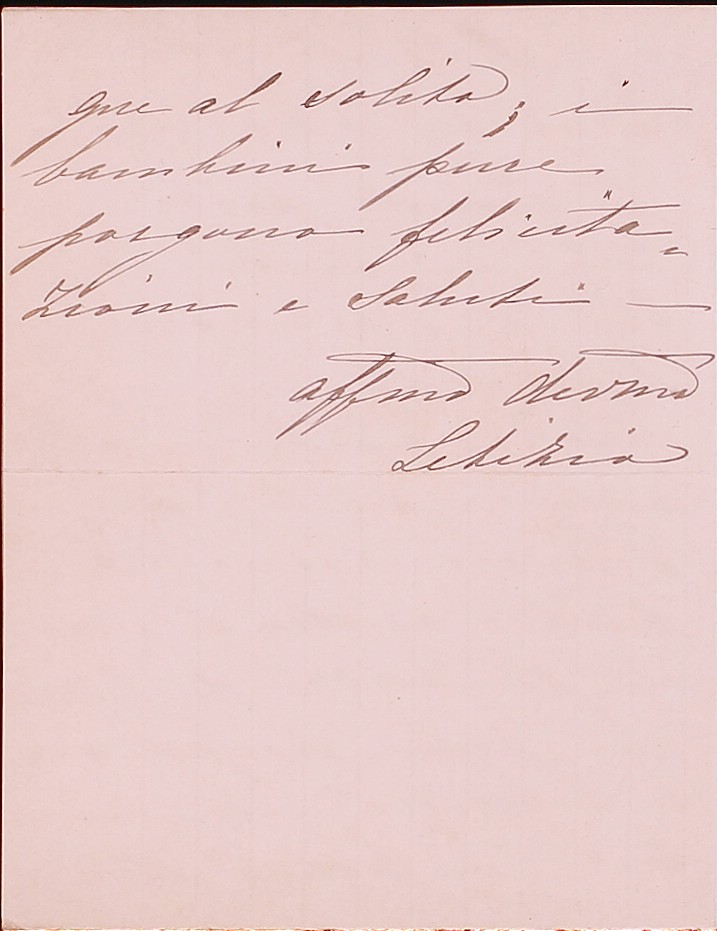 que al solito; i
bambini pure
porgono felicita-
zioni e saluti —
affma devma
Letizia